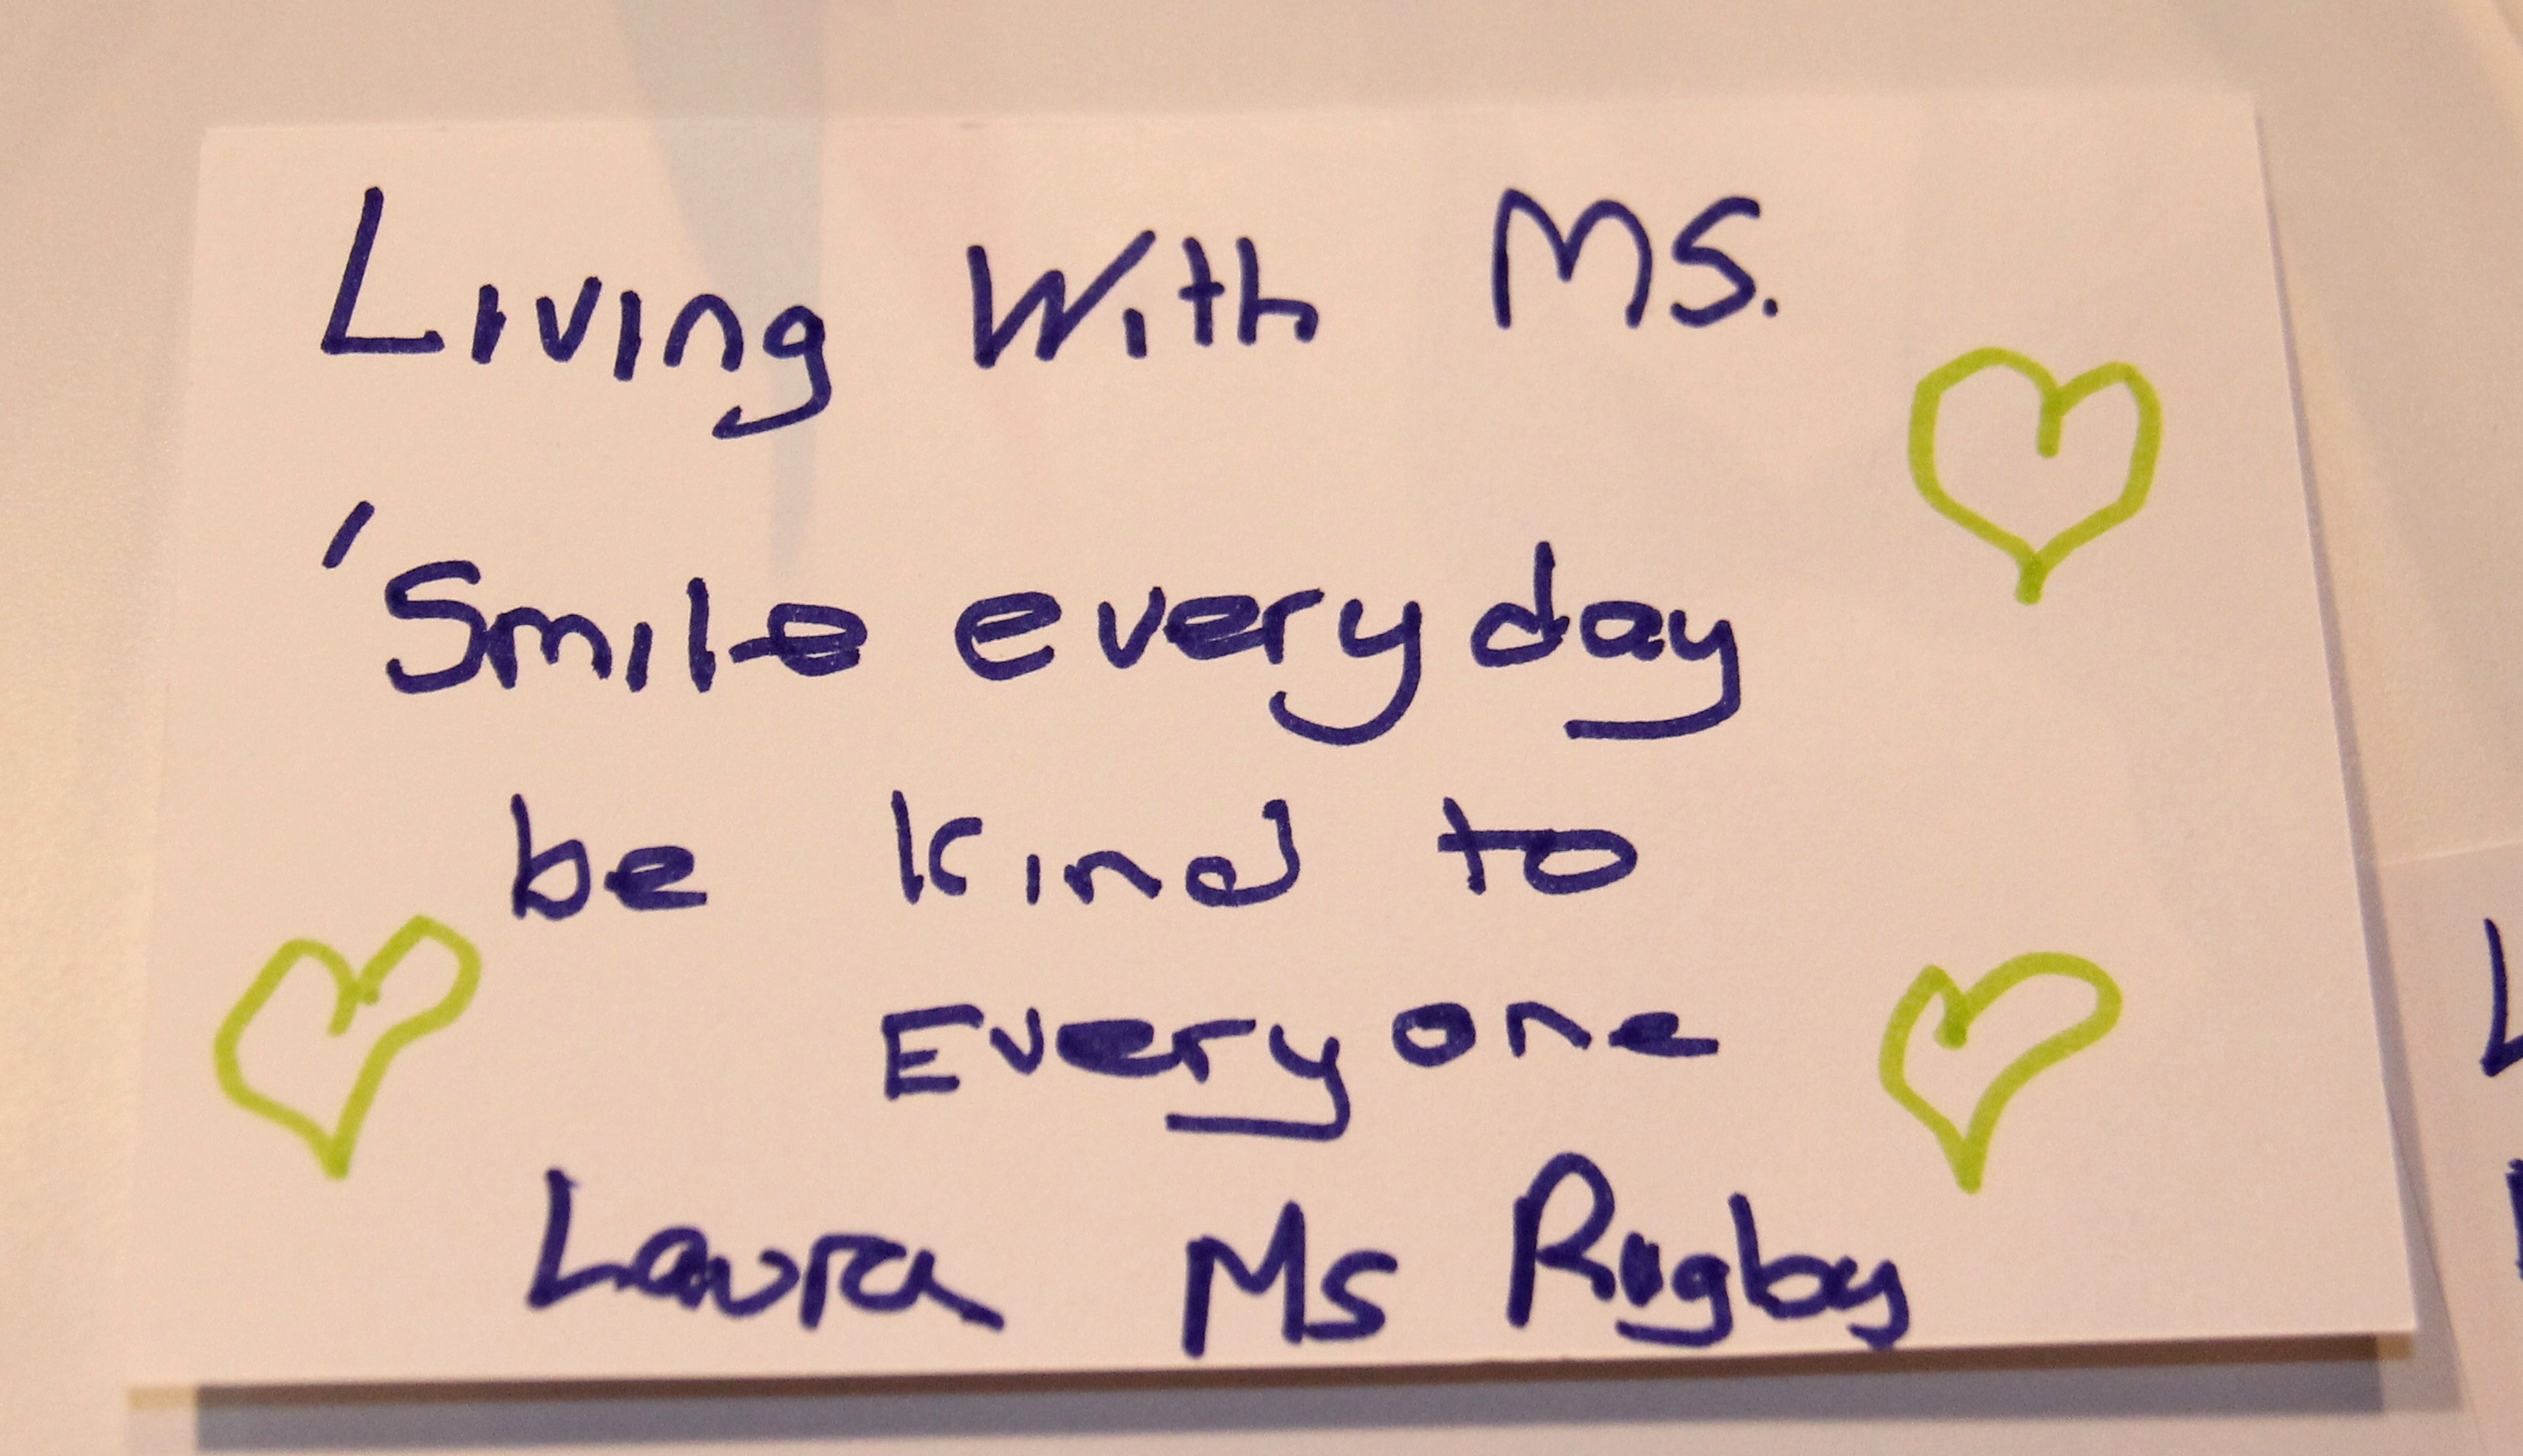 Living With MS.
'Smile everyday
be kind to
Everyone
Laura Ms Rigby